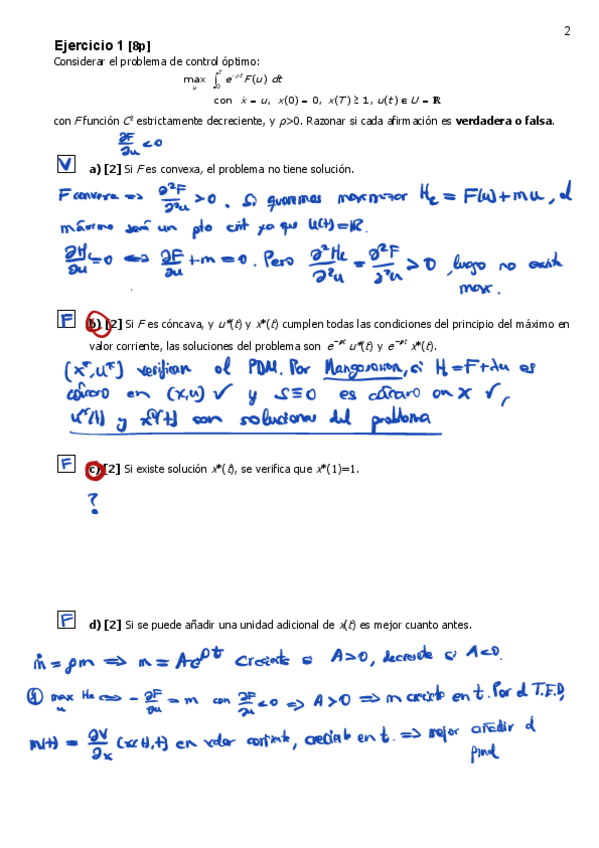 2
Ejercicio 1 [8p]
Considerar el problema de control óptimo:
max ∫ e^{-ρt} F(u) dt
u 0 T
con ẋ = u, x(0) = 0, x(T) ≥ 1, u(t) ∈ U = ℝ
con F función C² estrictamente decreciente, y ρ>0. Razonar si cada afirmación es verdadera o falsa.
∂F/∂u < 0
V a) [2] Si F es convexa, el problema no tiene solución.
F convexa => ∂²F/∂²u > 0. Si queremos maximizar Hc = F(u) + mu, el
máximo será un pto crit ya que U(t)=ℝ.
∂H/∂u = 0 <=> ∂F/∂u + m = 0. Pero ∂²Hc/∂²u = ∂²F/∂²u > 0, luego no existe
max.
F b) [2] Si F es cóncava, y u*(t) y x*(t) cumplen todas las condiciones del principio del máximo en
valor corriente, las soluciones del problema son e^{-ρt} u*(t) y e^{-ρt} x*(t).
(x*, u*) verifican el PDM. Por Mangasarian, si H = F + λu es
cóncavo en (x,u) ✓ y S≡0 es cóncavo en x ✓,
u*(t) y x*(t) son soluciones del problema
F c) [2] Si existe solución x*(t), se verifica que x*(1)=1.
?
F d) [2] Si se puede añadir una unidad adicional de x(t) es mejor cuanto antes.
ṁ = ρm => m = Ae^{ρt} creciente si A>0, decreciente si A<0.
max Hc <=> - ∂F/∂u = m con ∂F/∂u < 0 => A>0 => m creciente en t. Por el T.E.D,
u
m(t) = ∂V/∂x (x(t),t) en valor corriente, creciente en t. => mejor añadir al
final